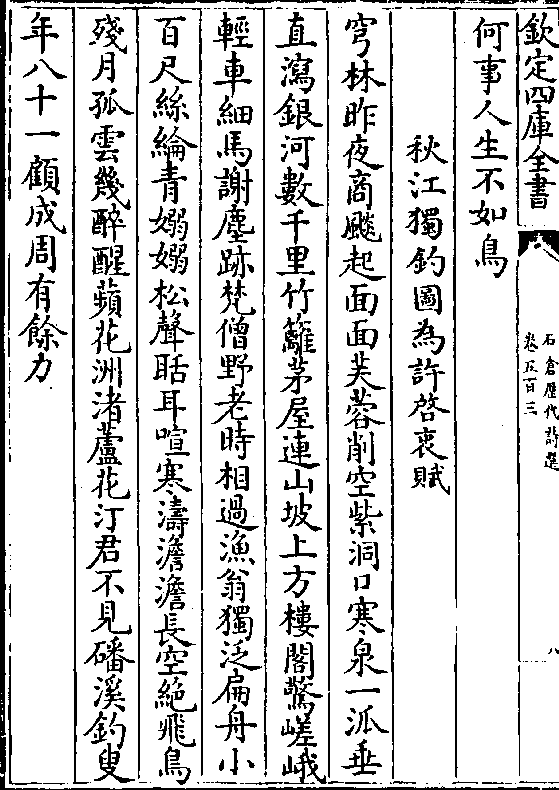 欽定四庫全書
石倉歷代詩選
卷五百三
八
何事人生不如鳥
秋江獨釣圖為許啓衷賦
穹林昨夜商飈起面面芙蓉削空紫洞口寒泉一派垂
直瀉銀河數千里竹籬茅屋連山坡上方樓閣驚嵯峨
輕車細馬謝塵跡梵僧野老時相過漁翁獨泛扁舟小
百尺絲綸青嫋嫋松聲聒耳喧寒濤澹澹長空絶飛鳥
殘月孤雲幾醉醒蘋花洲渚蘆花汀君不見磻溪釣叟
年八十一顧成周有餘力